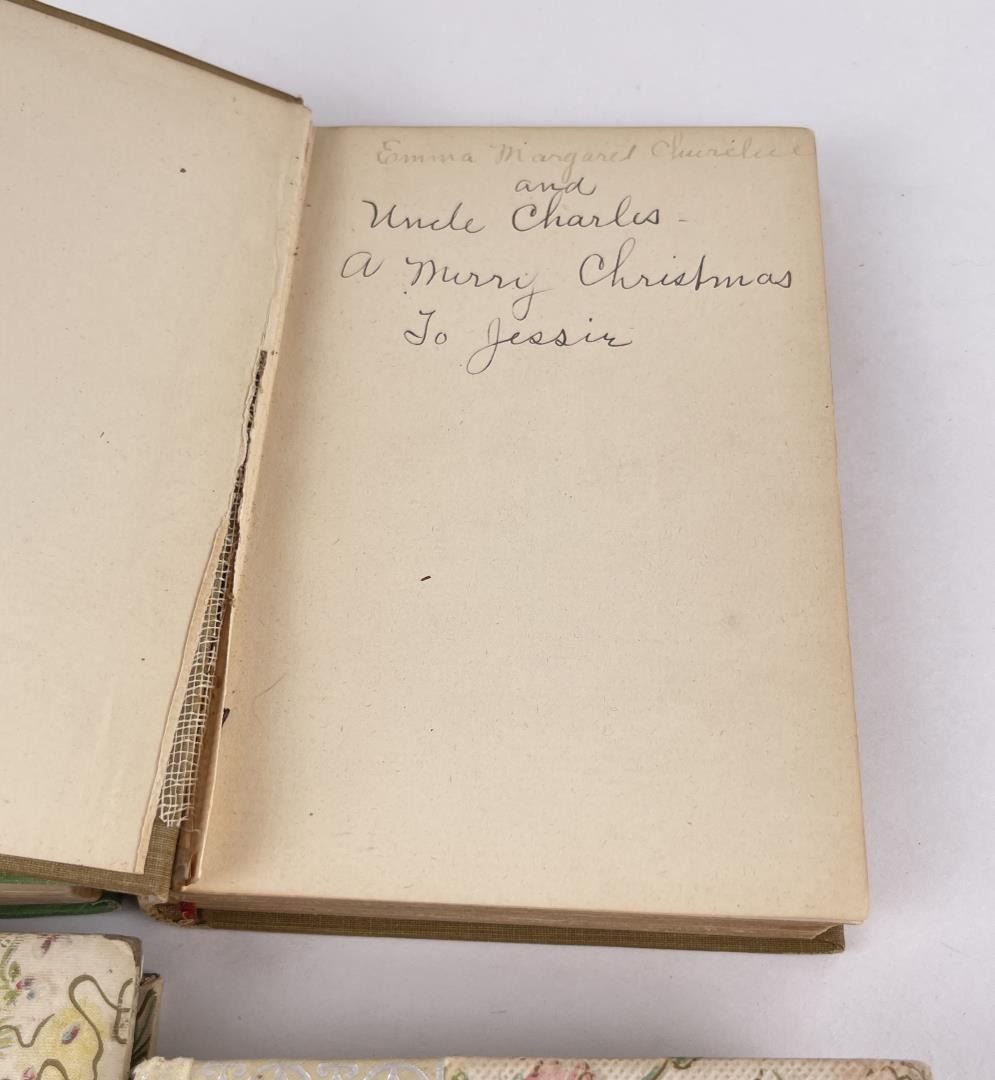 Emma Margaret Churchill
and
Uncle Charles -
A Merry Christmas
To Jessie